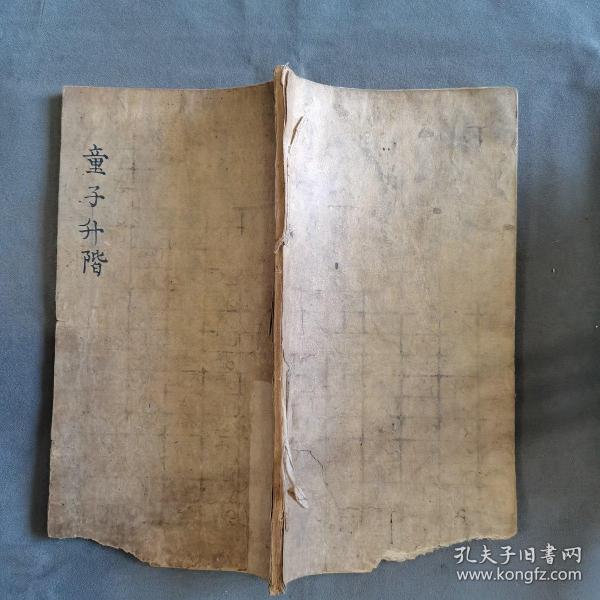 童子升階
孔夫子旧書网
www.kongfz.com